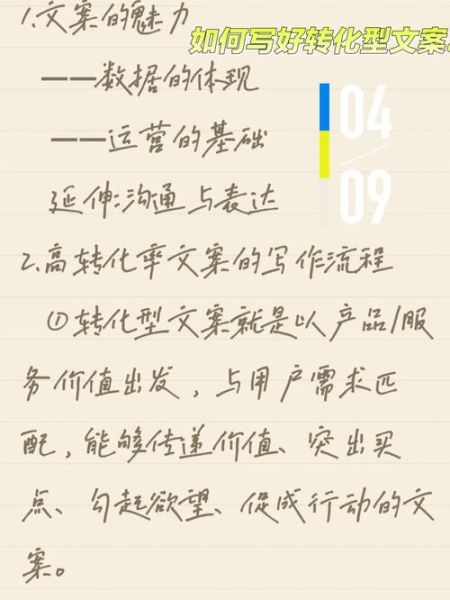 1.文案的魅力
如何写好转化型文案.
——数据的体现
——运营的基础
延伸:沟通与表达
04
09
2.高转化率文案的写作流程
①转化型文案就是以产品/服
务价值出发，与用户需求匹
配，能够传递价值、突出买
点、勾起欲望、促成行动的文
案。